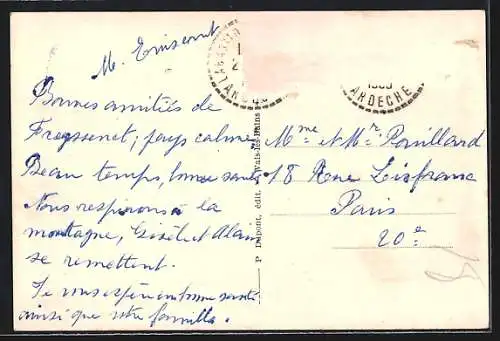 M.
Bonnes amitiés de
Freyssenet, pays calme
Beau temps, bonne santé
Nous respirons à la
montagne, Gisèle et Alain
se remettent.
Je vous espère en bonne santé
ainsi que votre famille.
ARDECHE
Mme et Mr. Pouillard
18 Rue Lisfranc
Paris
20e
P Dupont, édit. Vals-les-Bains